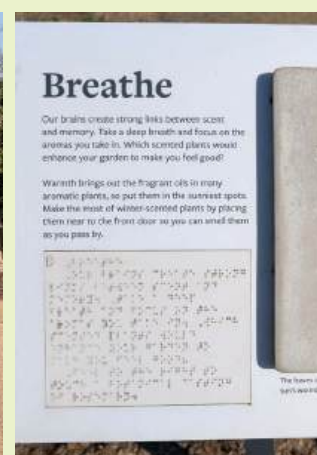 Breathe
Our brains create strong links between scent
and memory. Take a deep breath and focus on the
aromas you take in. Which scented plants would
enhance your garden to make you feel good?
Warmth brings out the fragrant oils in many
aromatic plants, so put them in the sunniest spots.
Make the most of winter-scented plants by placing
them near to the front door so you can smell them
as you pass by.
The leaves
sun's warmth